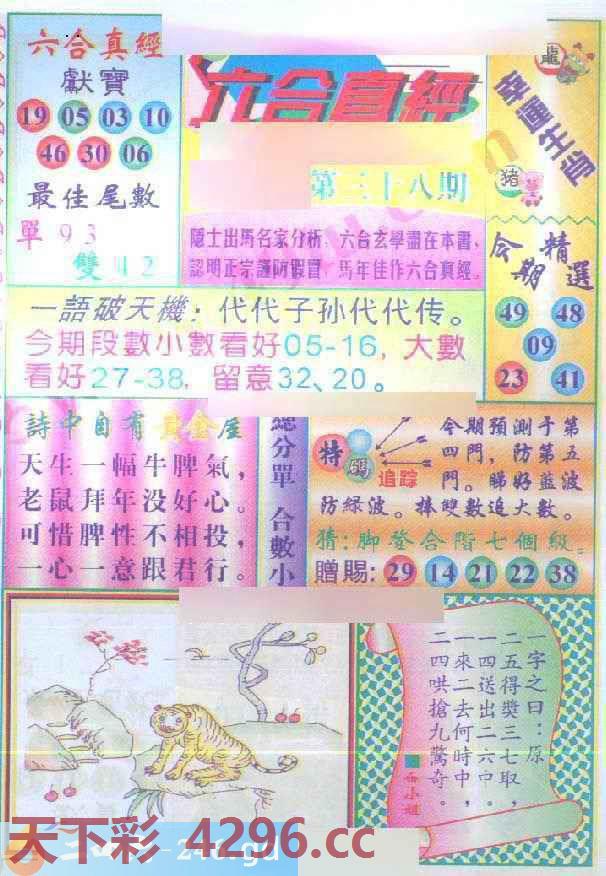 六合真經
獻寶
19 05 03 10
46 30 06
最佳尾數
單 9 3
雙 2
六合真經
第三十八期
隱士出馬名家分析,六合玄學盡在本書,
認明正宗謹防假冒,馬年佳作六合真經。
龍
幸運生肖
猪
今期精選
49 48
09
23 41
一語破天機:代代子孙代代传。
今期段數小數看好05-16,大數
看好27-38,留意32、20。
詩中自有黃金屋
天生一幅牛脾氣,
老鼠拜年没好心。
可惜脾性不相投,
一心一意跟君行。
總分單 合數小
特碼
追踪
今期預測于第
四門,防第五
門。睇好蓝波
防綠波。捧雙數追大數。
猜:脚登合階七個級。
贈賜:29 14 21 22 38
一字之曰:原
二五得獎三七取,
一四送出二六口。
一來二去何時中,
二四哄搶九驚奇。
小姐
天下彩 4296.cc